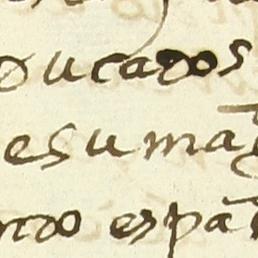 ducados
e su mag
ndo españ